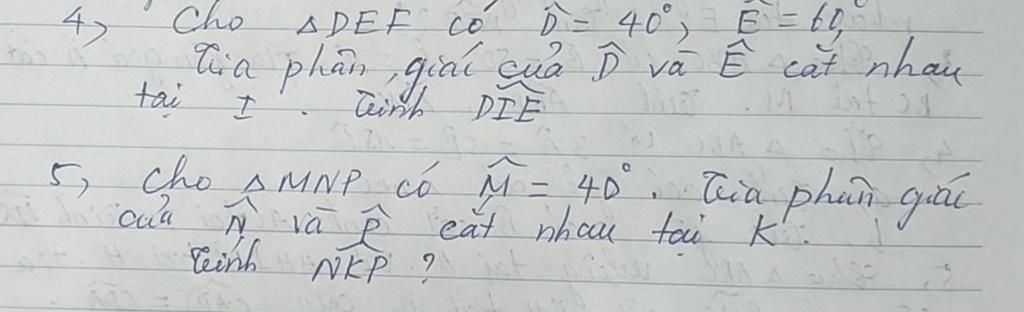 4, Cho △DEF có D̂ = 40°, Ê = 60°,
Tia phân giác của D̂ và Ê cắt nhau
tại I. Tính DIE
5, Cho △MNP có M̂ = 40°. Tia phân giác
của N̂ và P̂ cắt nhau tại K.
Tính NKP ?